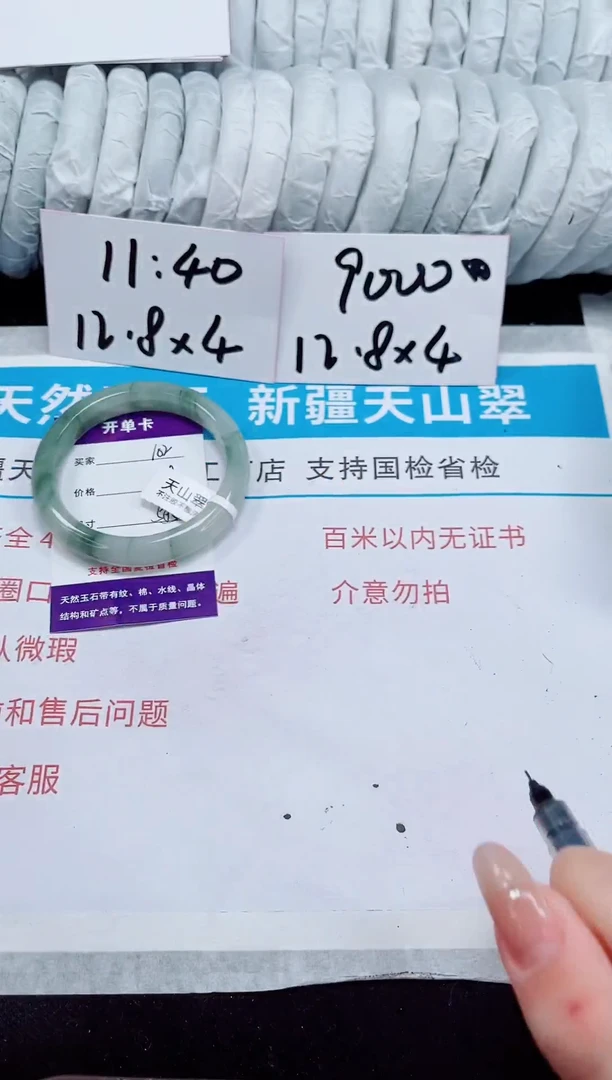 11:40
12.8×4
9000
12.8×4
天然
新疆天山翠
店 支持国检省检
开单卡
买家
价格
天山翠
寸
支持全国
天然玉石带有纹、棉、水线、晶体
结构和矿点等，不属于质量问题。
全
百米以内无证书
圈口
遍
介意勿拍
微瑕
和售后问题
客服